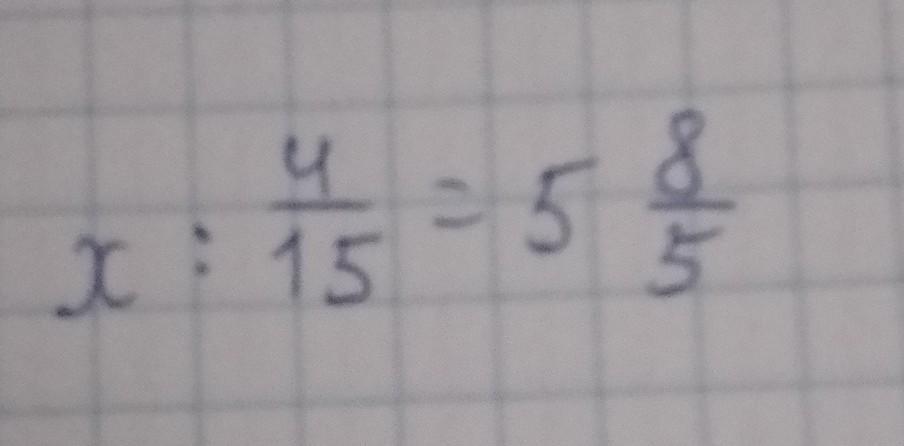 x : 4/15 = 5 8/5